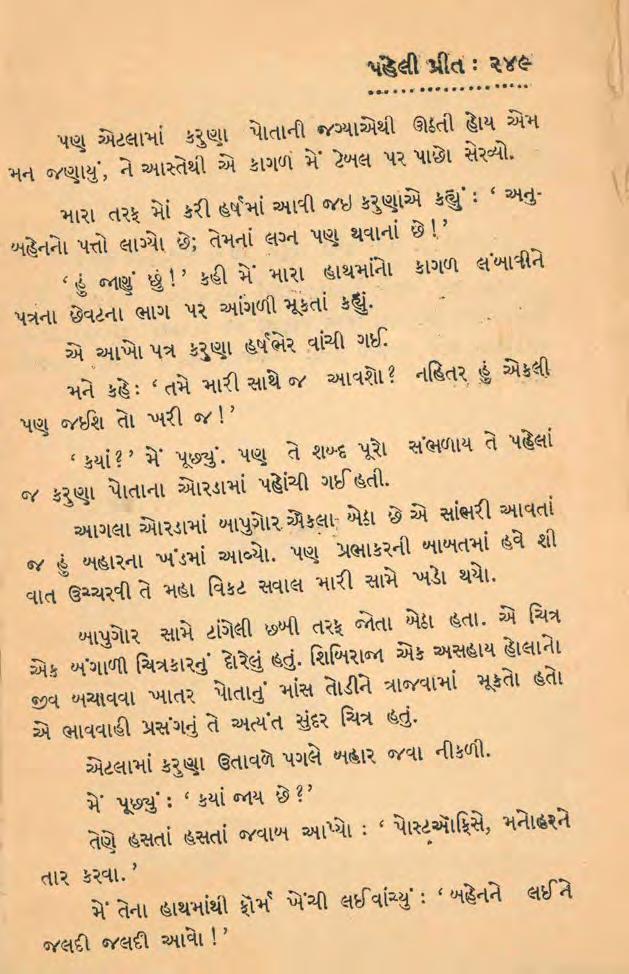 પહેલી પ્રીત : ૨૪૯
પણ એટલામાં કરુણા પોતાની જગ્યાએથી ઊઠતી હોય એમ
મન જણાયું, ને આસ્તેથી એ કાગળ મેં ટેબલ પર પાછો સેરવ્યો.
મારા તરફ મોં કરી હર્ષમાં આવી જઇ કરુણાએ કહ્યું : ‘ અનુ-
બહેનનો પત્તો લાગ્યો છે; તેમનાં લગ્ન પણ થવાનાં છે ! ’
‘ હું જાણું છું ! ’ કહી મેં મારા હાથમાંનો કાગળ લંબાવીને
પત્રના છેવટના ભાગ પર આંગળી મૂકતાં કહ્યું.
એ આખો પત્ર કરુણા હર્ષભેર વાંચી ગઈ.
મને કહે : ‘ તમે મારી સાથે જ આવશો ? નહિતર હું એકલી
પણ જઈશ તો ખરી જ ! ’
‘ કયાં ? ’ મેં પૂછ્યું. પણ તે શબ્દ પૂરો સંભળાય તે પહેલાં
જ કરુણા પોતાના ઓરડામાં પહોંચી ગઈ હતી.
આગલા ઓરડામાં બાપુગોર એકલા બેઠા છે એ સાંભરી આવતાં
જ હું બહારના ખંડમાં આવ્યો. પણ પ્રભાકરની બાબતમાં હવે શી
વાત ઉચ્ચરવી તે મહા વિકટ સવાલ મારી સામે ખડો થયો.
બાપુગોર સામે ટાંગેલી છબી તરફ જોતા બેઠા હતા. એ ચિત્ર
એક બંગાળી ચિત્રકારનું દોરેલું હતું. શિબિરાજા એક અસહાય હોલાનો
જીવ બચાવવા ખાતર પોતાનું માંસ તોડીને ત્રાજવામાં મૂકતો હતો
એ ભાવવાહી પ્રસંગનું તે અત્યંત સુંદર ચિત્ર હતું.
એટલામાં કરુણા ઉતાવળે પગલે બહાર જવા નીકળી.
મેં પૂછ્યું : ‘ કયાં જાય છે ? ’
તેણે હસતાં હસતાં જવાબ આપ્યો : ‘ પોસ્ટઑફિસે, મનોહરને
તાર કરવા. ’
મેં તેના હાથમાંથી ફૉર્મ ખેંચી લઈ વાંચ્યું : ‘ બહેનને લઈને
જલદી જલદી આવો ! ’